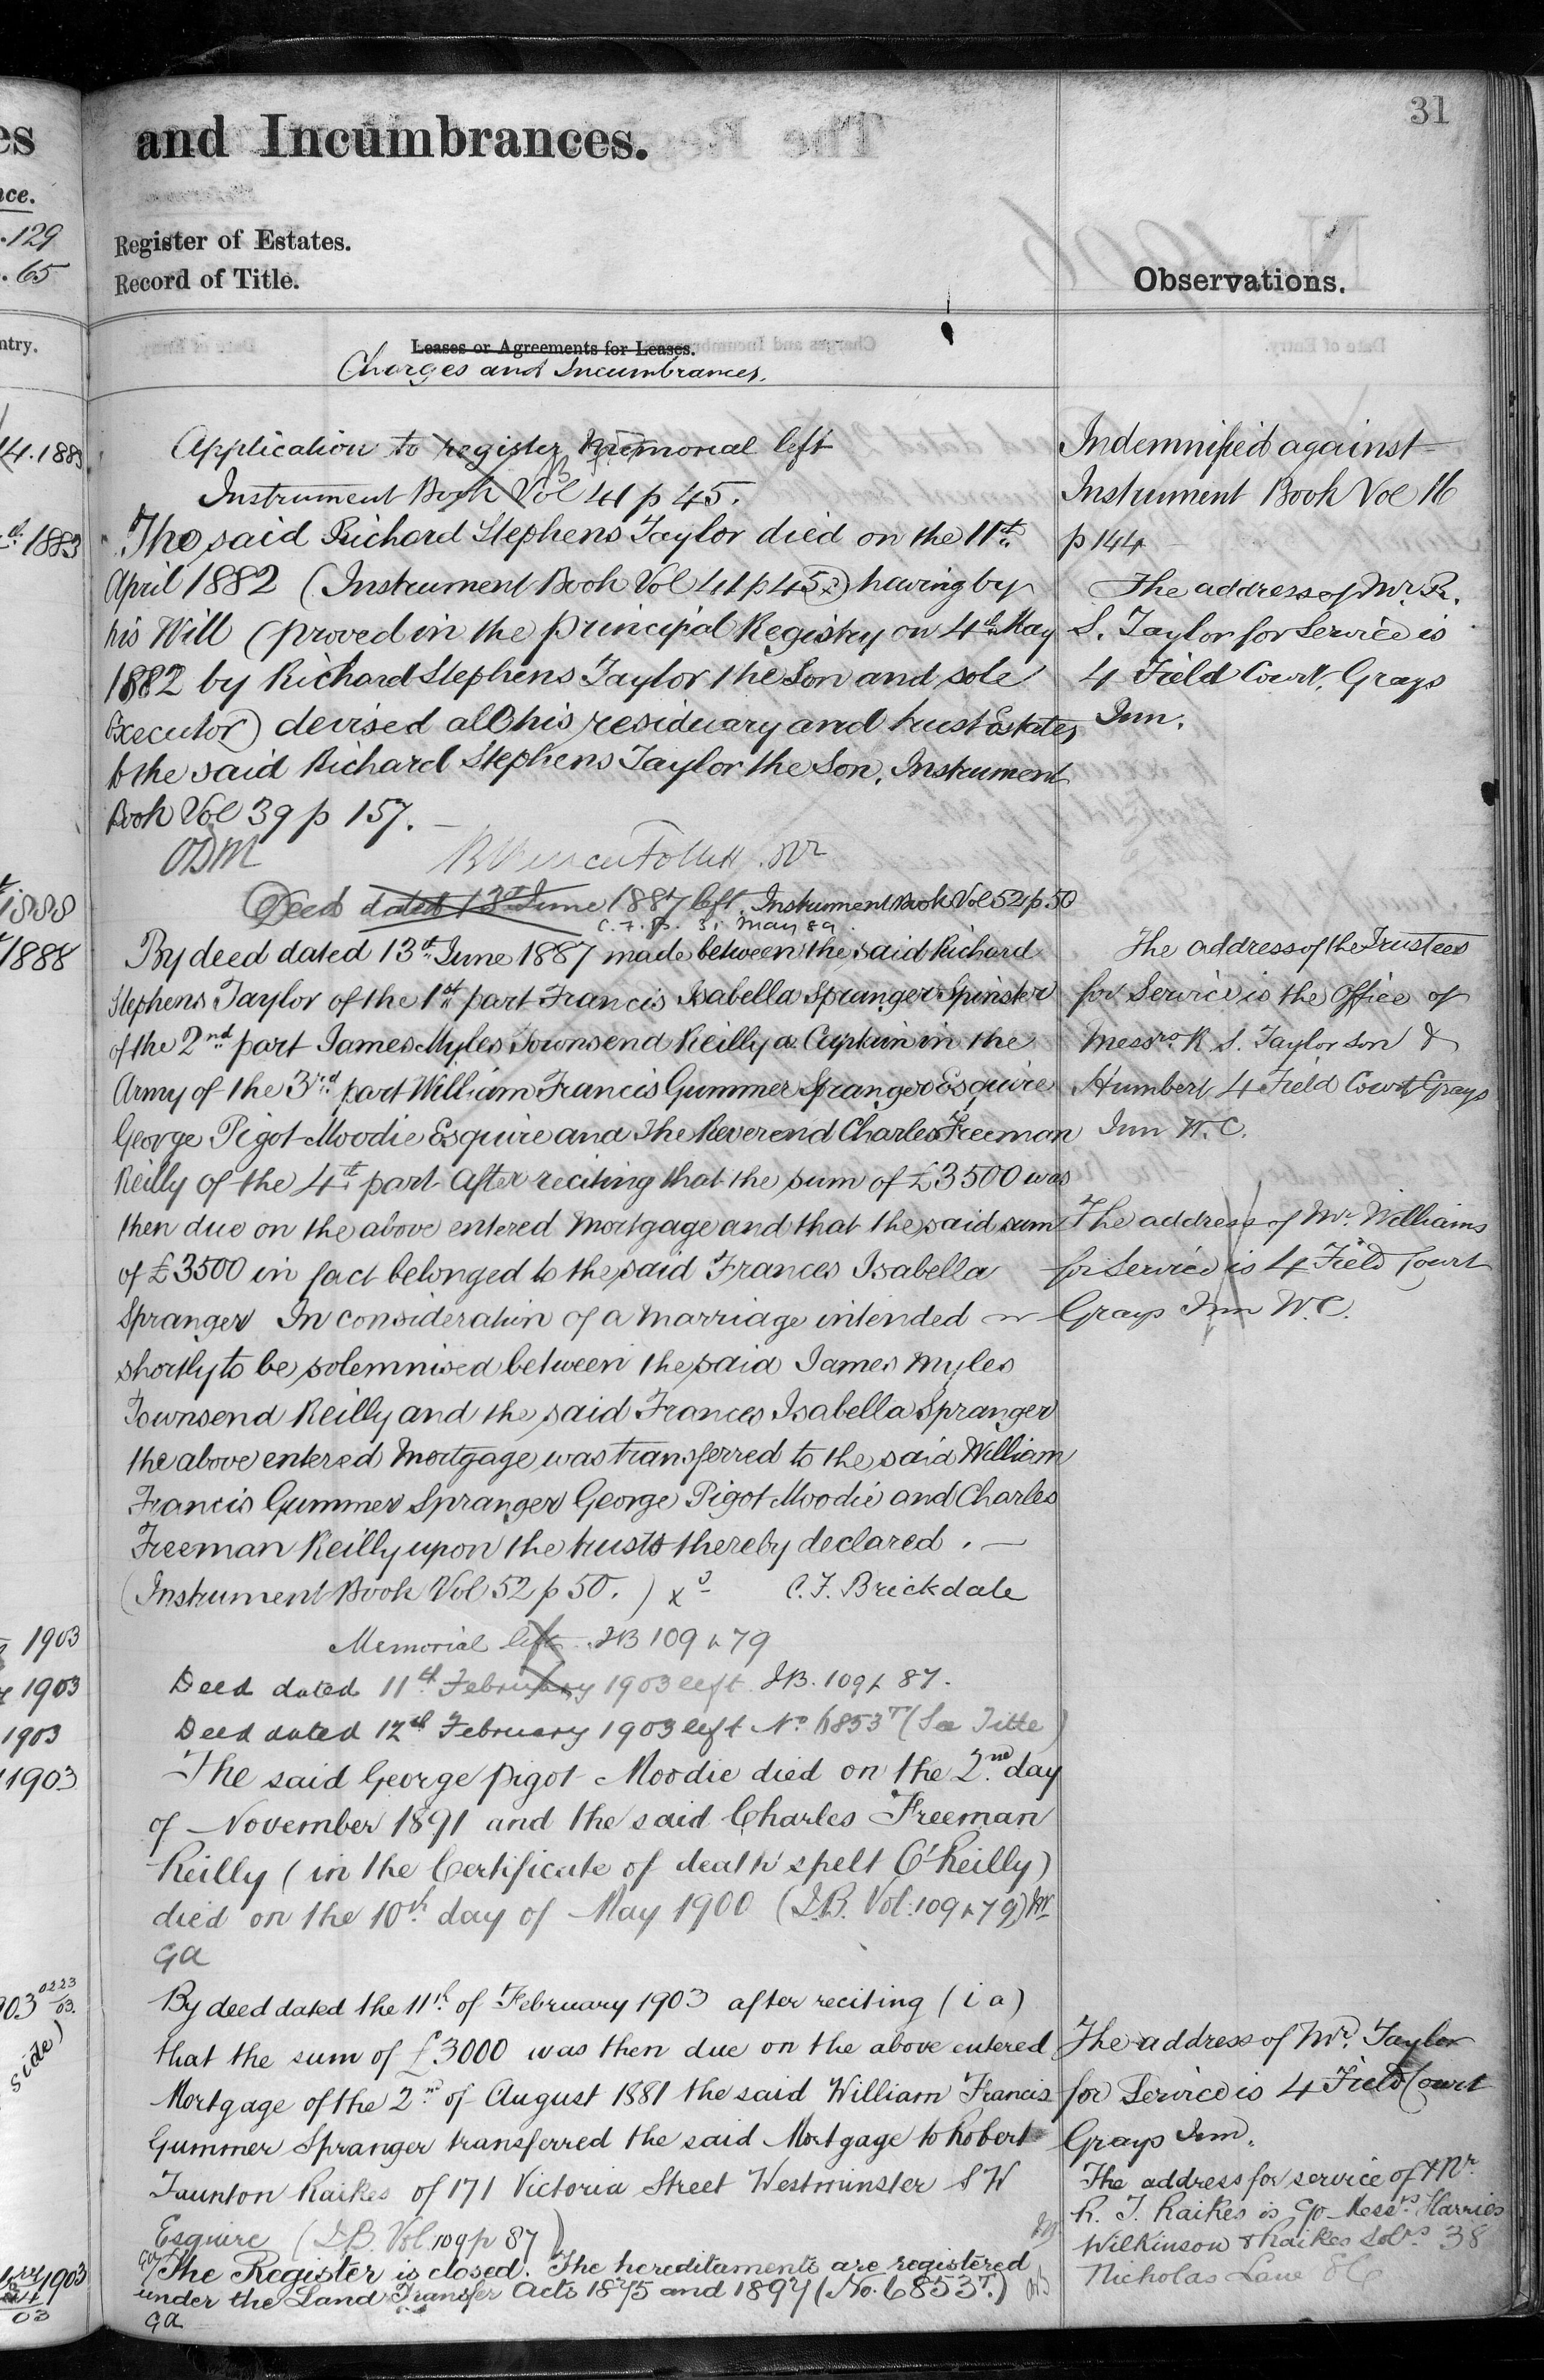 31
and Incumbrances.
Register of Estates.
Record of Title.
Observations.
Leases or Agreements for Leases.
Charges and Incumbrances.
Application to register memorial left
Instrument Book Vol 41 p 45.
The said Richard Stephens Taylor died on the 11th
April 1882 (Instrument Book Vol 41 p 45) having by
his Will (proved in the principal Registry on 4th May
1882 by Richard Stephens Taylor the Son and sole
Executor) devised all his residuary and trust Estates
to the said Richard Stephens Taylor the Son. Instrument
Book Vol 39 p 157.
ODM
Deed dated 13th June 1887 left. Instrument Book Vol 52 p 50
C.F.B. 31 May 89.
By deed dated 13th June 1887 made between the said Richard
Stephens Taylor of the 1st part Francis Isabella Spranger Spinster
of the 2nd part James Myles Townsend Reilly a Captain in the
Army of the 3rd part William Francis Gummer Spranger Esquire
George Pigot Moodie Esquire and The Reverend Charles Freeman
Reilly of the 4th part After reciting that the sum of £3500 was
then due on the above entered Mortgage and that the said sum
of £3500 in fact belonged to the said Frances Isabella
Spranger In consideration of a marriage intended
shortly to be solemnised between the said James Myles
Townsend Reilly and the said Frances Isabella Spranger
the above entered Mortgage was transferred to the said William
Francis Gummer Spranger George Pigot Moodie and Charles
Freeman Reilly upon the trusts thereby declared.
(Instrument Book Vol 52 p 50.) C. F. Brickdale
Memorial left IB 109 p 79
Deed dated 11th February 1903 left IB. 109 p 87.
Deed dated 12th February 1903 left No 6853T (See Title)
The said George Pigot Moodie died on the 2nd day
of November 1891 and the said Charles Freeman
Reilly (in the Certificate of death spelt O'Reilly)
died on the 10th day of May 1900 (I.B. Vol. 109 p 79)
GA
By deed dated the 11th of February 1903 after reciting (i a)
that the sum of £3000 was then due on the above entered
Mortgage of the 2nd of August 1881 the said William Francis
Gummer Spranger transferred the said Mortgage to Robert
Taunton Raikes of 171 Victoria Street Westminster S W
Esquire (I.B. Vol. 109 p 87)
GA
The Register is closed. The hereditaments are registered
under the Land Transfer Acts 1875 and 1897 (No. 6853T.)
GA
Indemnified against
Instrument Book Vol 16
p 144
The address of Mr. R.
S. Taylor for Service is
4 Field Court, Grays
Inn.
The address of the Trustees
for Service is the Office of
Messrs R. S. Taylor Son &
Humbert 4 Field Court Grays
Inn W.C.
The address of Mr. Williams
for Service is 4 Field Court
Grays Inn W.C.
The address of Mr. Taylor
for Service is 4 Field Court
Grays Inn.
The address for service of Mr.
R. T. Raikes is c/o Messrs Harries
Wilkinson & Raikes Solrs 38
Nicholas Lane EC
es
nce.
.129
.65
ntry.
14.1883
1883
1888
1888
1903
1903
1903
1903
side)
1903
03